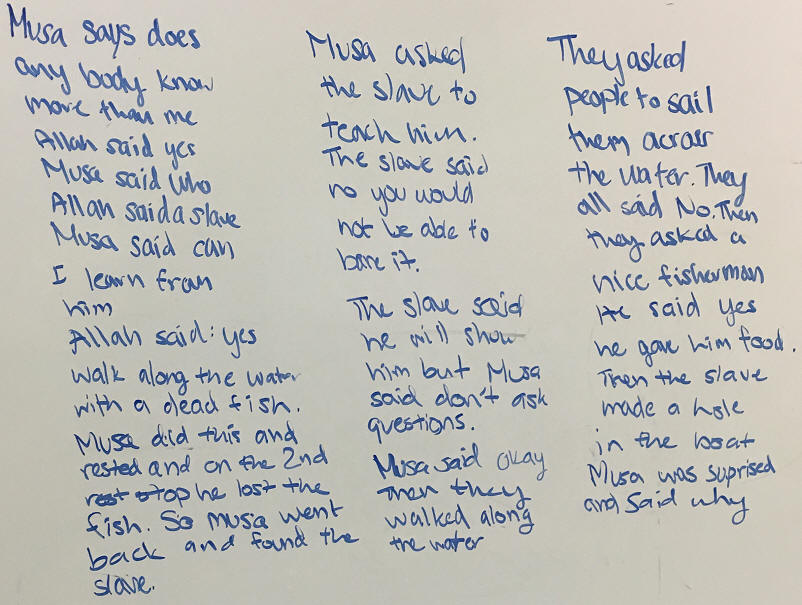 Musa says does
any body know
more than me
Allah said yes
Musa said who
Allah said a slave
Musa said can
I learn from
him
Allah said: yes
walk along the water
with a dead fish.
Musa did this and
rested and on the 2nd
rest stop he lost the
fish. So Musa went
back and found the
slave.
Musa asked
the slave to
teach him.
The slave said
no you would
not be able to
bare it.
The slave said
he will show
him but Musa
said don't ask
questions.
Musa said okay
Then they
walked along
the water
They asked
people to sail
them across
the water. They
all said No. Then
they asked a
nice fisherman
He said yes
he gave him food.
Then the slave
made a hole
in the boat
Musa was suprised
and said why